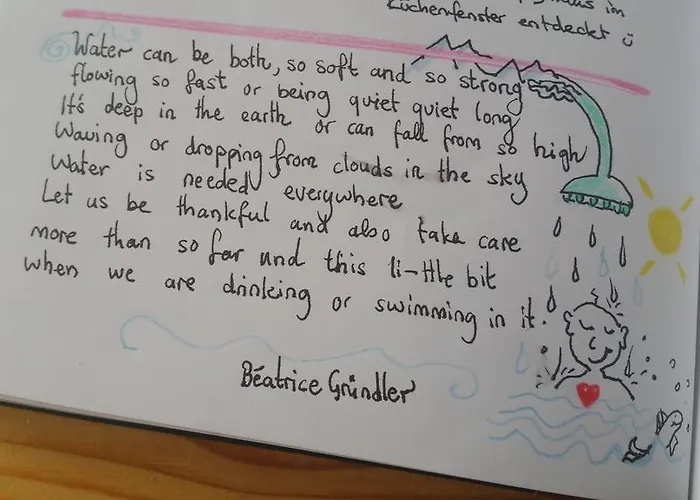 im
Küchenfenster entdeckt
Water can be both, so soft and so strong
flowing so fast or being quiet quiet long
It's deep in the earth or can fall from so high
Waving or dropping from clouds in the sky
Water is needed everywhere
Let us be thankful and also take care
more than so far und this li-ttle bit
when we are drinking or swimming in it.
Béatrice Gründler